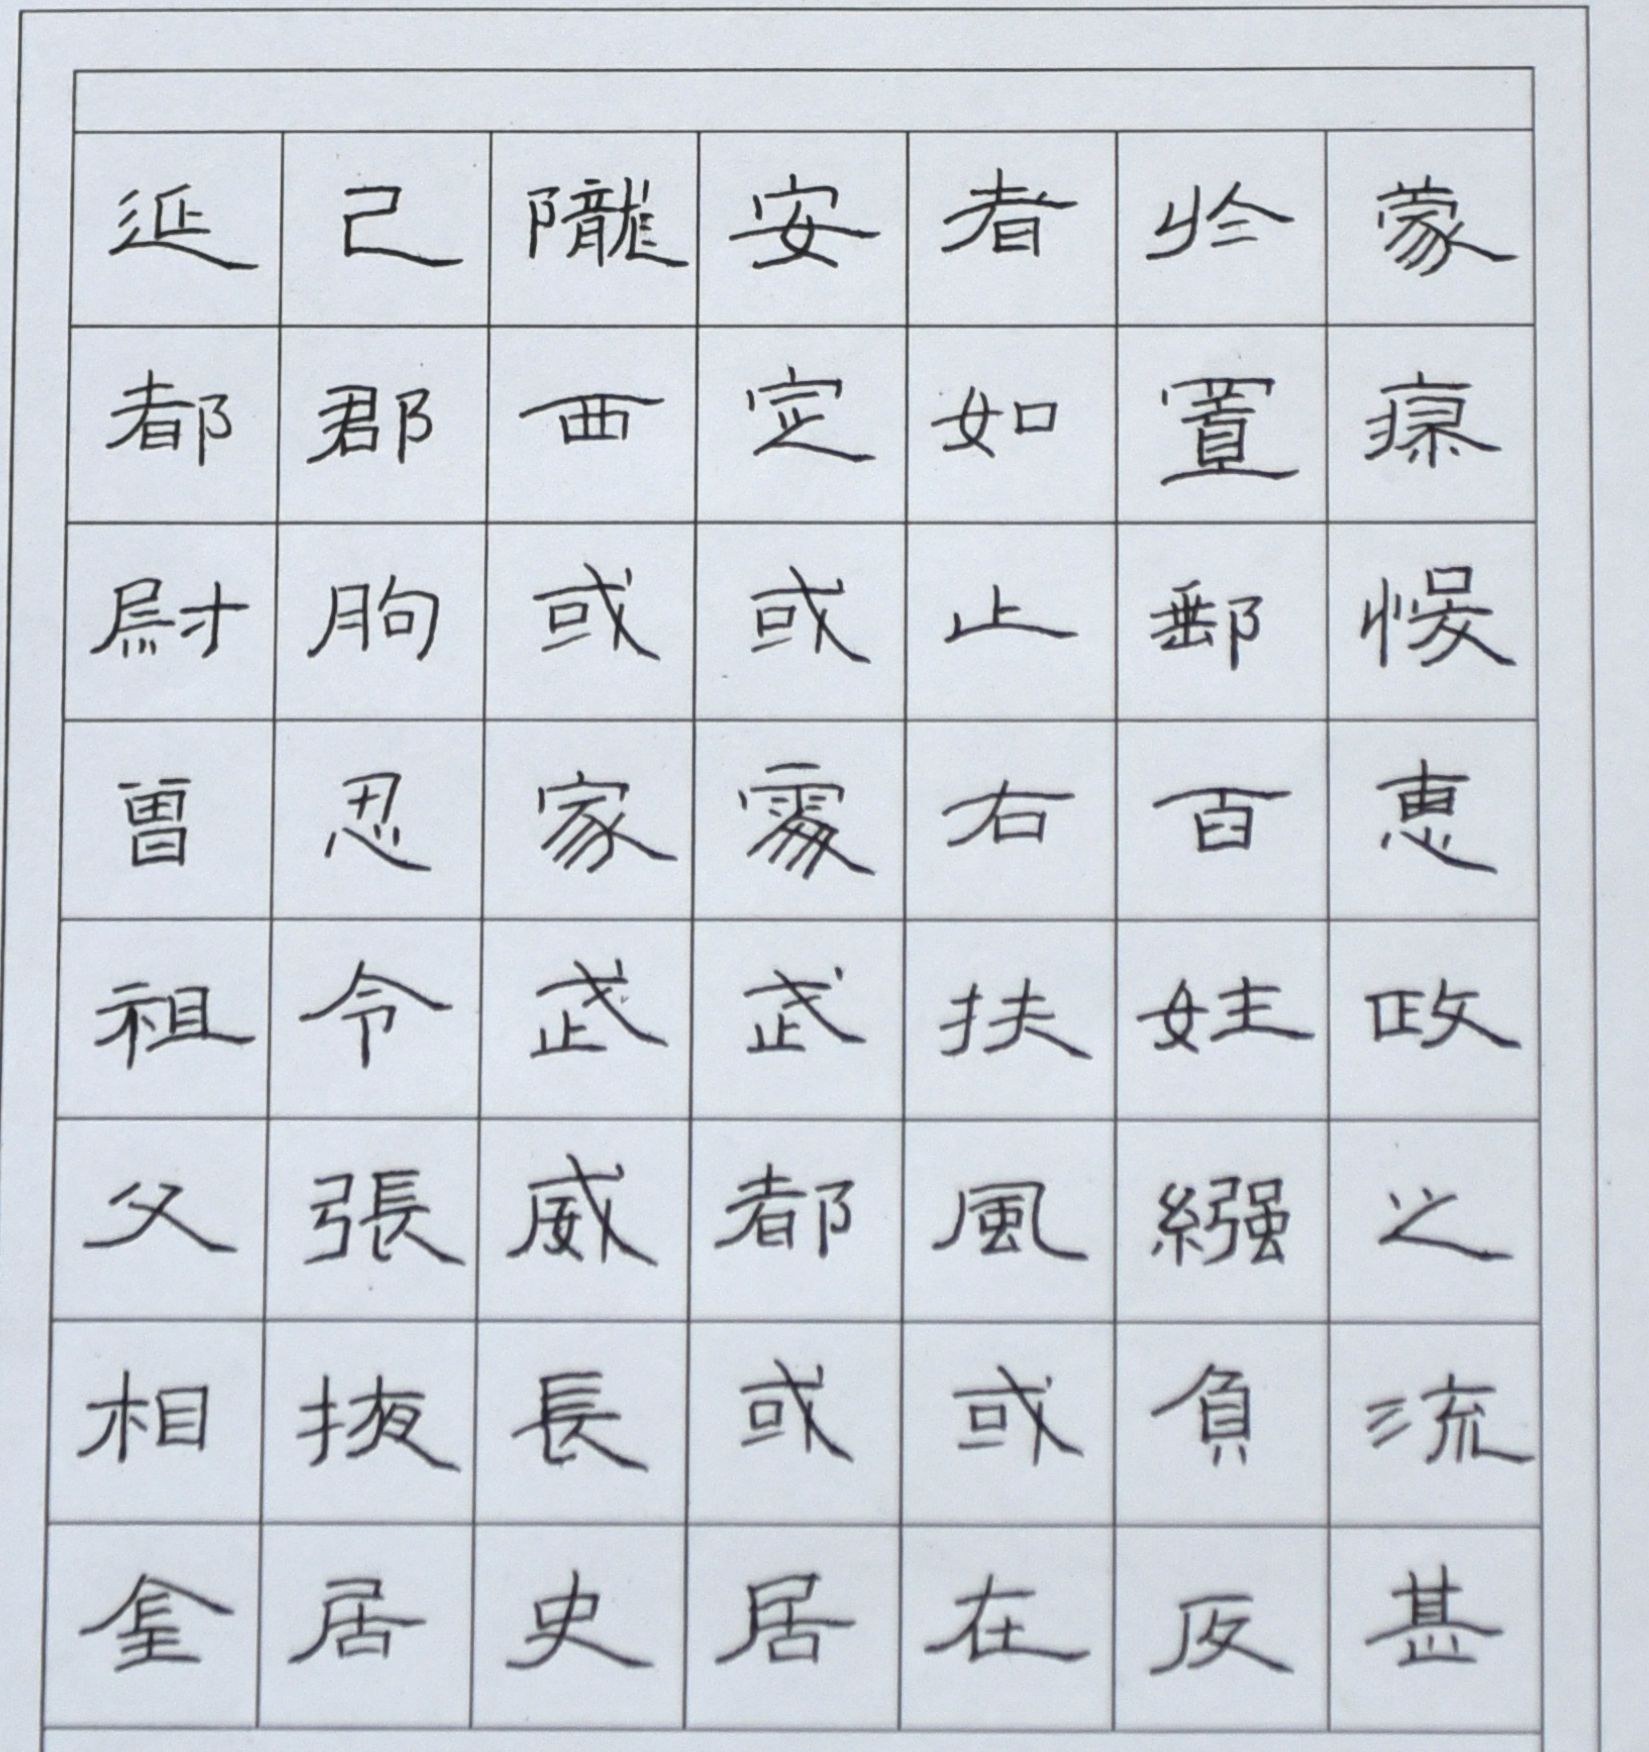 蒙悛惠政之流甚
於置郵百姓繈負反
者如止右扶風或在
安定或處武都或居
隴西或家武威長史
己郡朐忍令張掖居
延都尉曾祖父相金